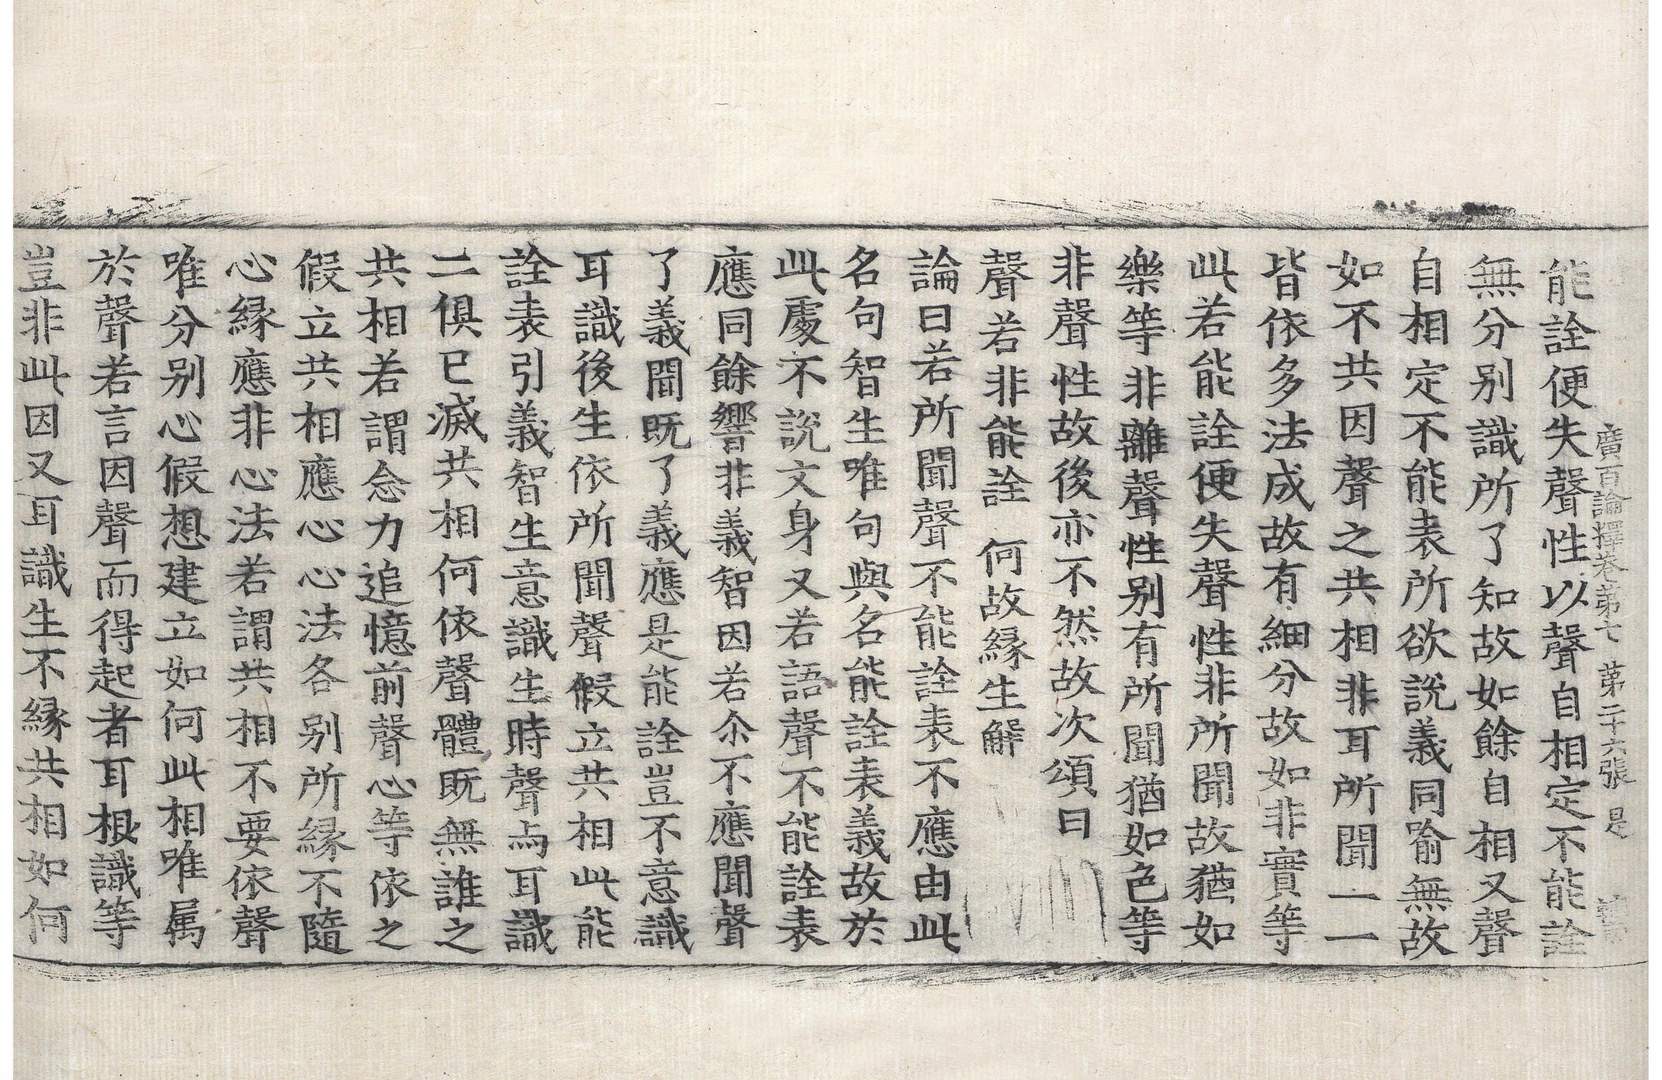 廣百論釋卷第七 第二十六張 是
能詮便失聲性以聲自相定不能詮
無分别識所了知故如餘自相又聲
自相定不能表所欲說義同喻無故
如不共因聲之共相非耳所聞一一
皆依多法成故有細分故如非實等
此若能詮便失聲性非所聞故猶如
樂等非離聲性别有所聞猶如色等
非聲性故後亦不然故次頌曰
聲若非能詮 何故緣生解
論曰若所聞聲不能詮表不應由此
名句智生唯句與名能詮表義故於
此處不說文身又若語聲不能詮表
應同餘響非義智因若尒不應聞聲
了義聞既了義應是能詮豈不意識
耳識後生依所聞聲假立共相此能
詮表引義智生意識生時聲與耳識
二俱已滅共相何依聲體既無誰之
共相若謂念力追憶前聲心等依之
假立共相應心心法各别所緣不隨
心緣應非心法若謂共相不要依聲
唯分别心假想建立如何此相唯属
於聲若言因聲而得起者耳根識等
豈非此因又耳識生不緣共相如何